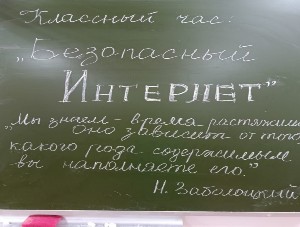 Классный час:
„Безопасный
Интернет"
„Мы знаем - время растяжимо
Оно зависит от того,
какого рода содержимым
вы наполняете его."
Н. Заболоцкий